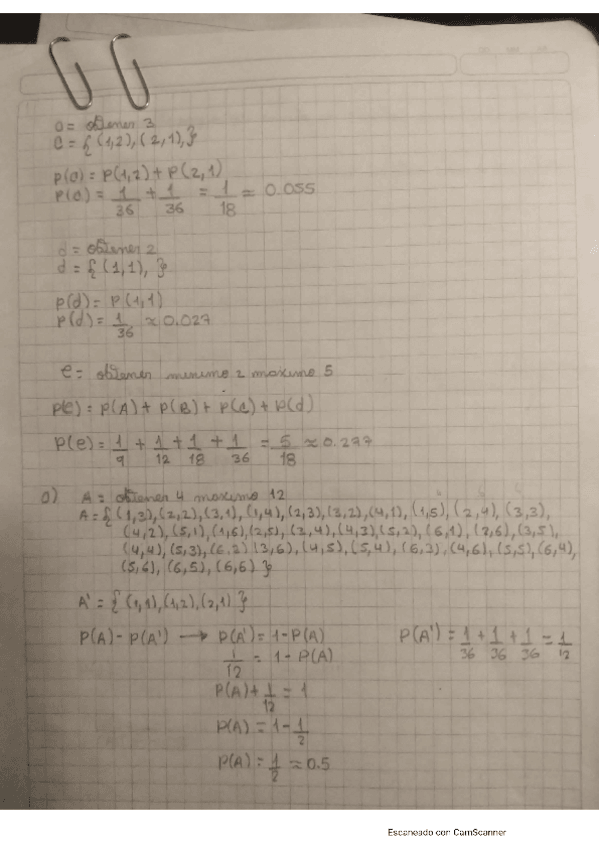 C = obtener 3
C = { (1,2), (2,1), }
P(C) = P(1,2) + P(2,1)
P(C) = 1/36 + 1/36 = 1/18 ≈ 0.055
d = obtener 2
d = { (1,1), }
P(d) = P(1,1)
P(d) = 1/36 ≈ 0.027
e = obtener minimo 2 maximo 5
P(e) = P(A) + P(B) + P(C) + P(d)
P(e) = 1/9 + 1/12 + 1/18 + 1/36 = 5/18 ≈ 0.277
A = obtener 4 maximo 12
A = { (1,3), (2,2), (3,1), (1,4), (2,3), (3,2), (4,1), (1,5), (2,4), (3,3),
(4,2), (5,1), (1,6), (2,5), (3,4), (4,3), (5,2), (6,1), (2,6), (3,5),
(4,4), (5,3), (6,2) (3,6), (4,5), (5,4), (6,3), (4,6), (5,5), (6,4),
(5,6), (6,5), (6,6) }
A' = { (1,1), (1,2), (2,1) }
P(A) - P(A') → P(A') = 1 - P(A) P(A') = 1/36 + 1/36 + 1/36 = 1/12
1/12 = 1 - P(A)
P(A) + 1/12 = 1
P(A) = 1 - 1/2
P(A) = 1/2 ≈ 0.5
Escaneado con CamScanner